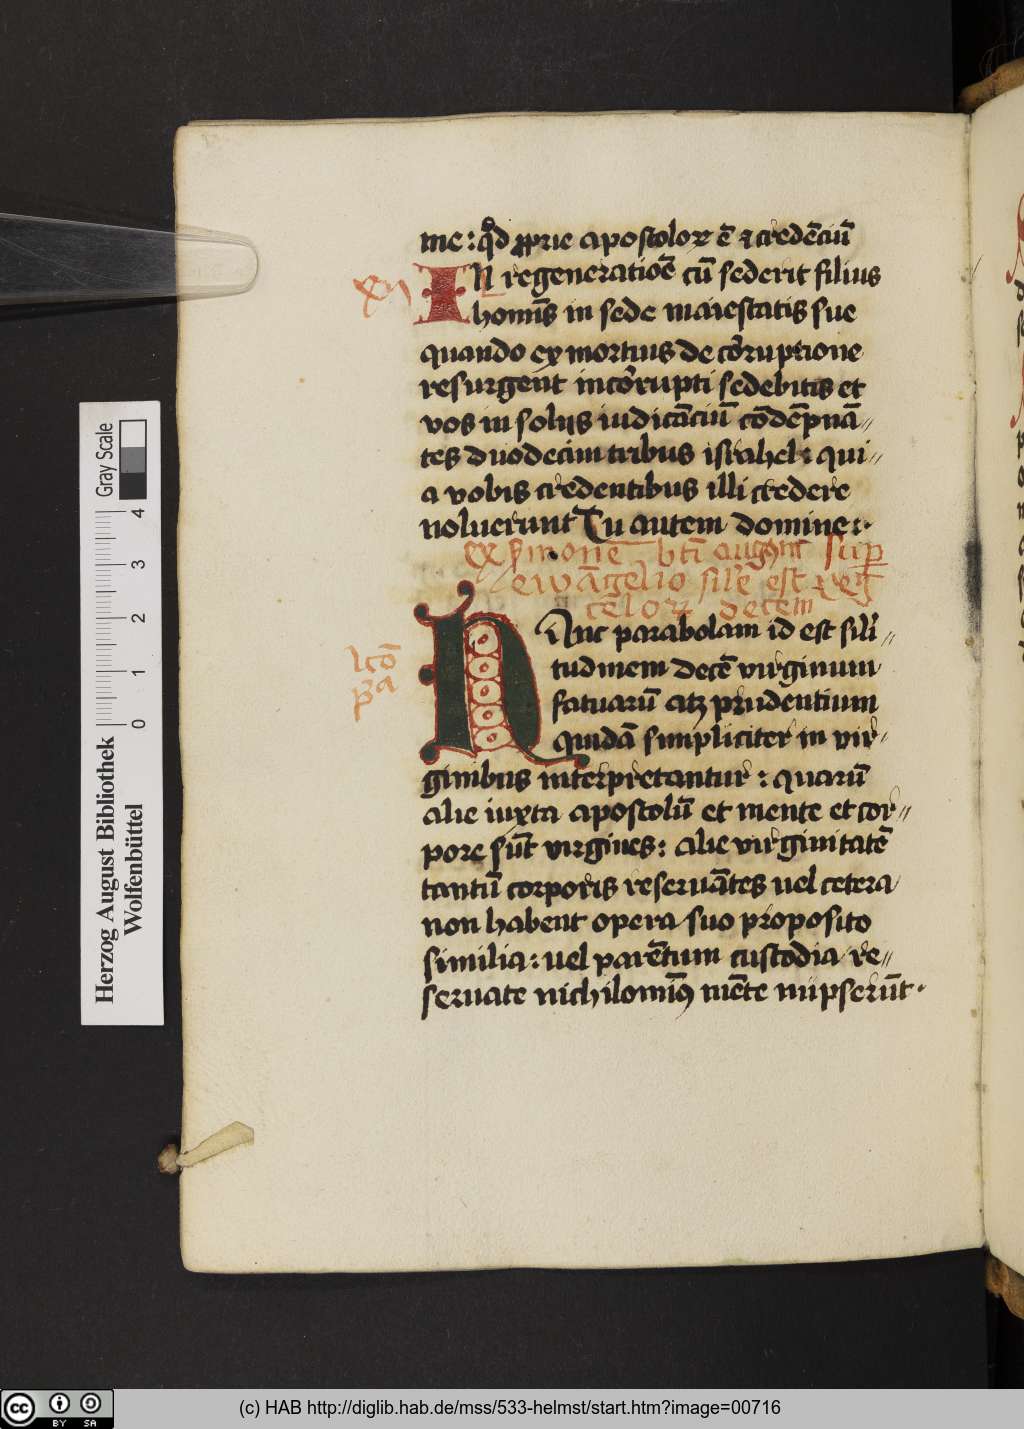 me : qd̊ ꝓprie apostoloꝝ ē ⁊ credēciū
xii
IN regeneratiōe cū sederit filius
homīs in sede maiestatis sue
quando ex mortuis de cōruptione
resurgent incōrupti sedebitis et
vos in solijs iudicāciū cōdēpnā〃
tes duodecim tribus israhel : qui〃
a vobis credentibus illi credere
noluerunt Tu autem domine :·
ex sermone bti augꝰtī suꝑ
ewāgelio sile est regͫ
celoꝝ decem
lcō
pͥa
HAnc parabolam id est sili〃
tudinem decē virginum
fatuarū atꝫ prudentium
quidā simpliciter in vir〃
ginibus interpretantur : quarū
alie iuxta apostolū et mente et cor〃
pore sūt virgines : alie virginitatē
tantū corporis reseruātes uel cetera
non habent opera suo proposito
similia : uel parētum custodia re〃
seruate nichilomīꝰ mēte nupserūt ·
Gray Scale
4
3
2
1
0
Herzog August Bibliothek
Wolfenbüttel
cc BY SA
(c) HAB http://diglib.hab.de/mss/533-helmst/start.htm?image=00716